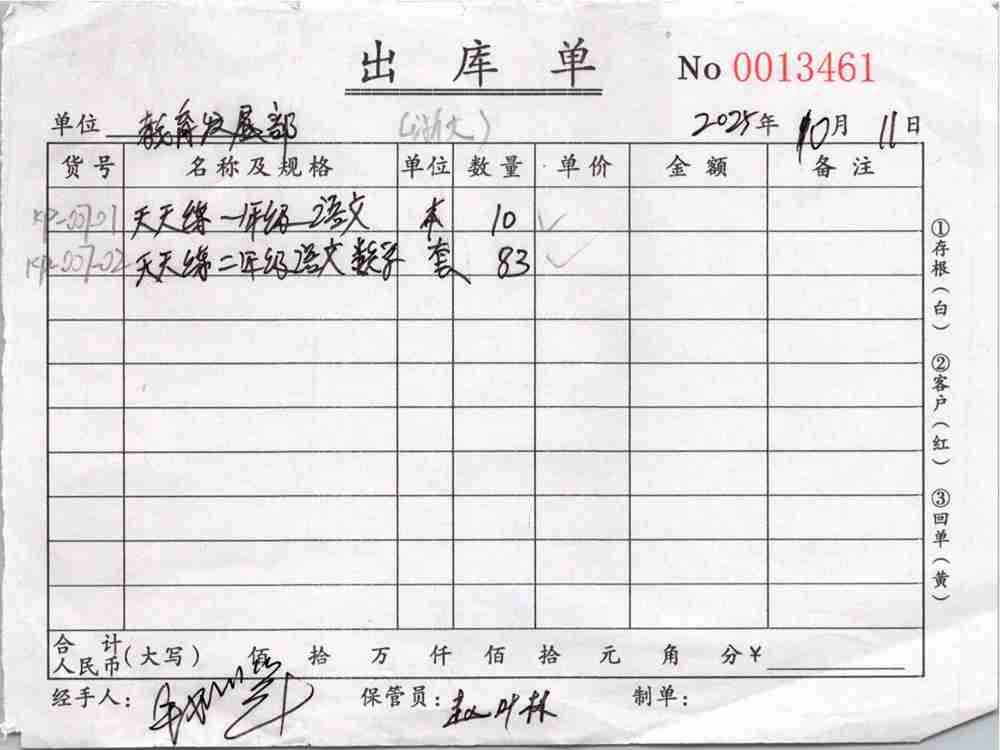 出库单 No 0013461
单位 教育发展部 (浙大) 2025年 10月 11日
货号 名称及规格 单位 数量 单价 金额 备注
KP-007-01 天天练一年级 语文 本 10 ✓
KP-007-02 天天练二年级语文数学 套 83 ✓
合计人民币(大写) 佰 拾 万 仟 佰 拾 元 角 分¥
经手人: 保管员:赵叶林 制单:
①存根(白)
②客户(红)
③回单(黄)